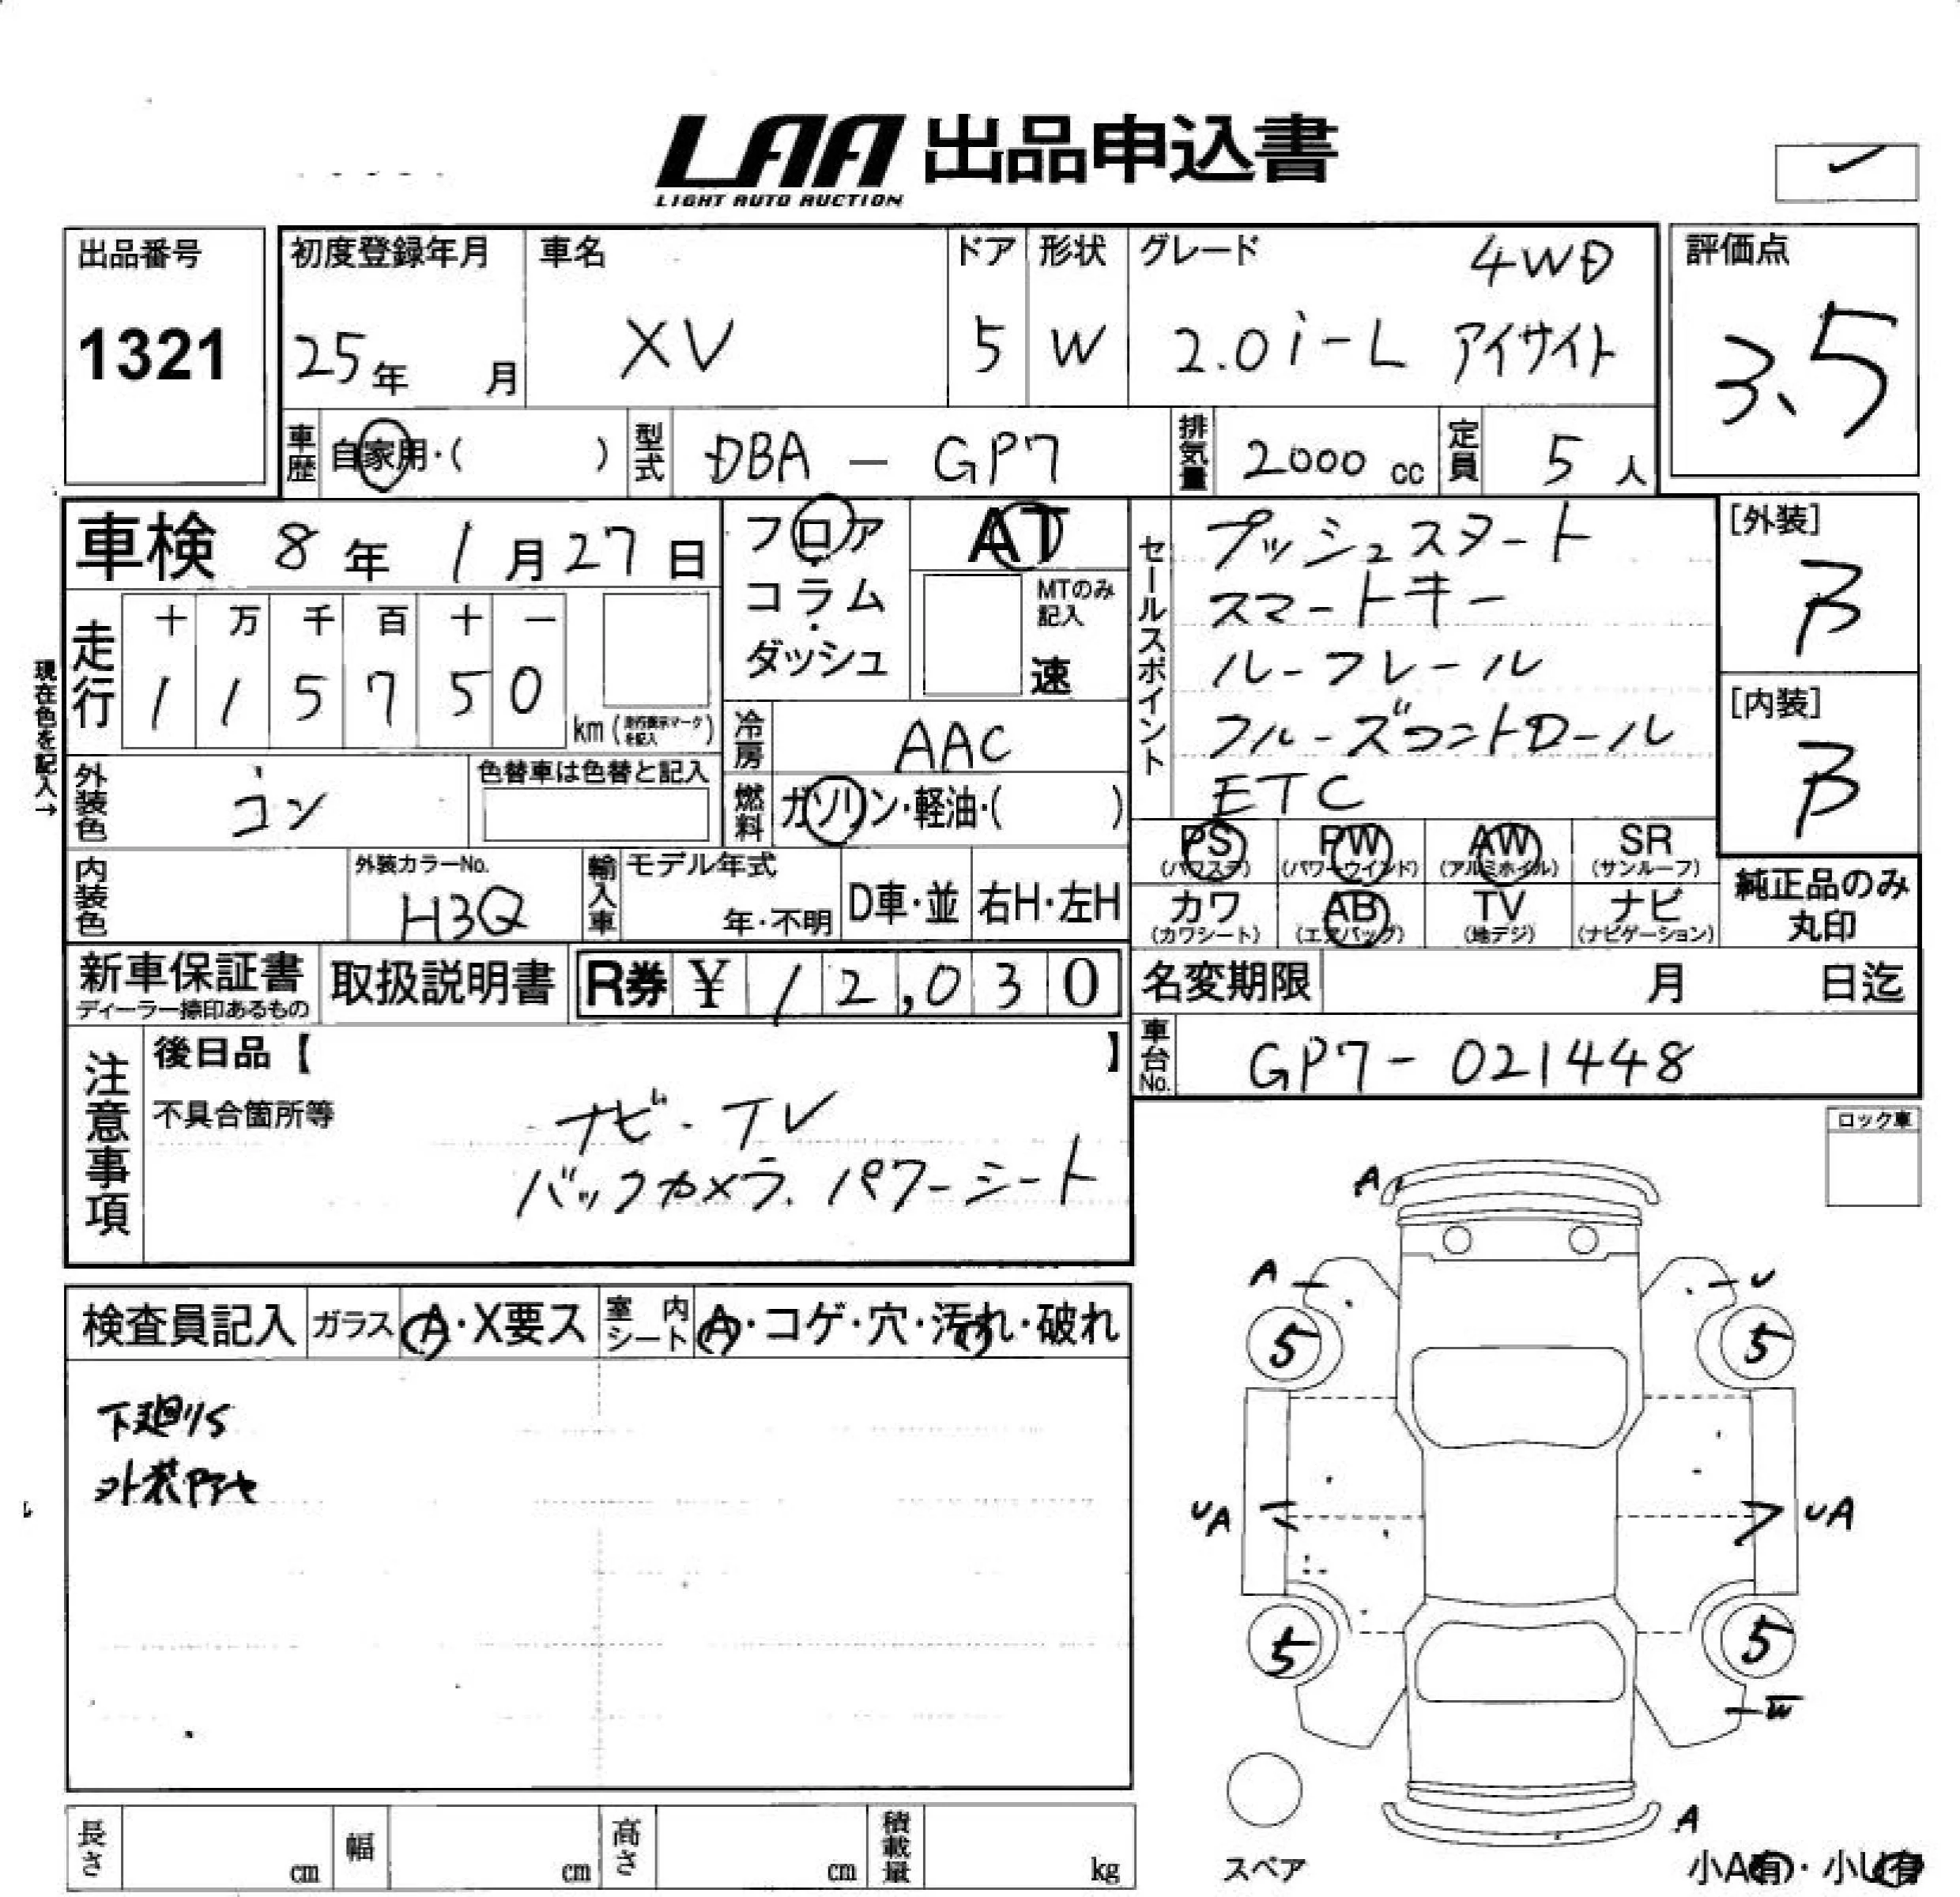 LAA 出品申込書
LIGHT AUTO AUCTION
出品番号
1321
初度登録年月
25年 月
車名
XV
ドア
5
形状
W
グレード
4WD
2.0i-L アイサイト
評価点
3.5
車歴
自家用・( )
型式
DBA - GP7
排気量
2000 cc
定員
5 人
車検 8年 1月27日
走行
十 万 千 百 十 一
1 1 5 7 5 0
km (走行表示マークを記入)
現在色を記入→
外装色
コン
色替車は色替と記入
内装色
外装カラーNo.
H3Q
フロア
・
コラム
・
ダッシュ
AT
MTのみ
記入
速
冷房
AAC
燃料
ガソリン・軽油・( )
輸入車
モデル年式
年・不明
D車・並
右H・左H
セールスポイント
プッシュスタート
スマートキー
ルーフレール
クルーズコントロール
ETC
[外装]
B
[内装]
B
PS
(パワステ)
PW
(パワーウインド)
AW
(アルミホイル)
SR
(サンルーフ)
カワ
(カワシート)
AB
(エアバッグ)
TV
(地デジ)
ナビ
(ナビゲーション)
純正品のみ
丸印
新車保証書
ディーラー捺印あるもの
取扱説明書
R券 ¥ 12,030
名変期限 月 日迄
車台No.
GP7-021448
注意事項
後日品【 】
不具合箇所等
ナビ・TV
バックカメラ、パワーシート
ロック車
検査員記入
ガラス
A・X要ス
室内シート
A・コゲ・穴・汚れ・破れ
下廻りS
A
A
U
5
5
UA
UA
5
5
W
A
スペア
小A有・小U有
長さ cm
幅 cm
高さ cm
積載量 kg